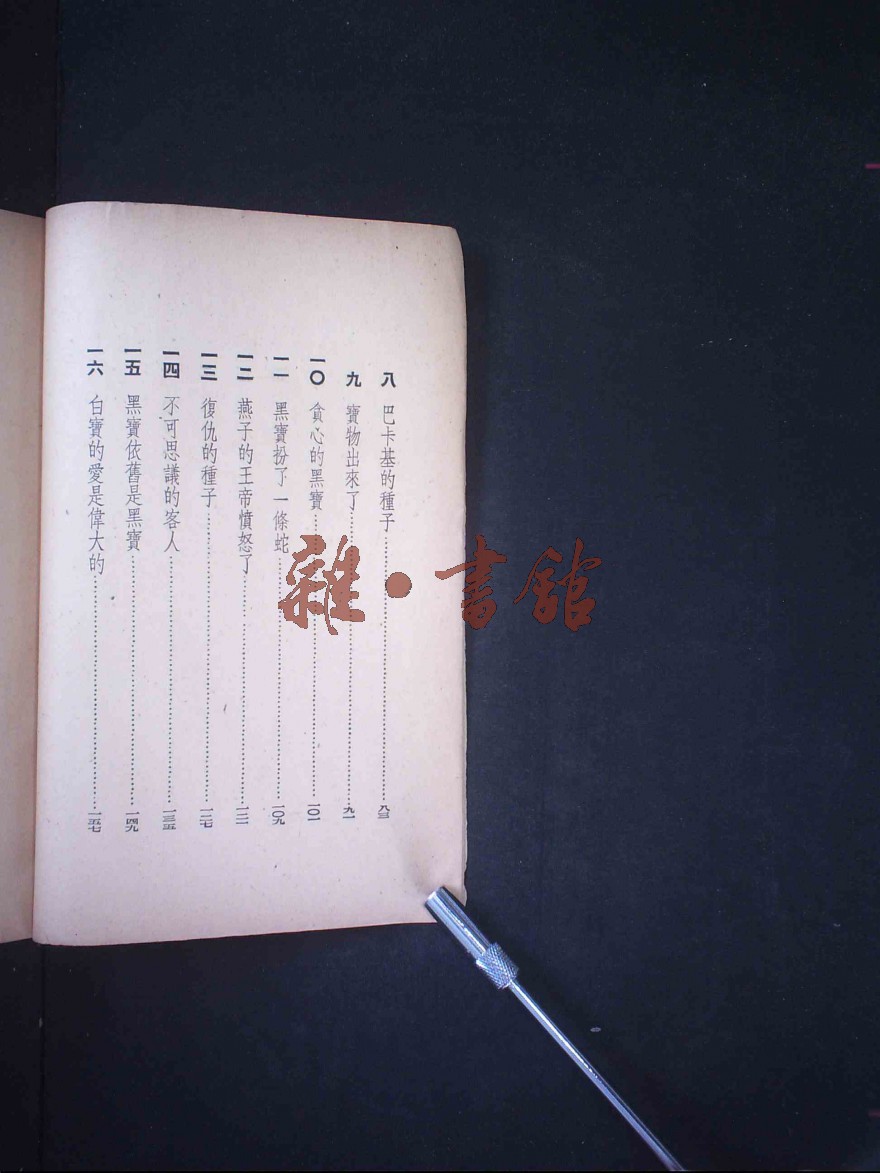 八 巴卡基的種子……八三
九 寶物出來了……九一
一〇 貪心的黑寶……一〇一
一一 黑寶扮了一條蛇……一〇九
一二 燕子的王帝憤怒了……一二一
一三 復仇的種子……一二七
一四 不可思議的客人……一三五
一五 黑寶依舊是黑寶……一四九
一六 白寶的愛是偉大的……一五七
雜·書館